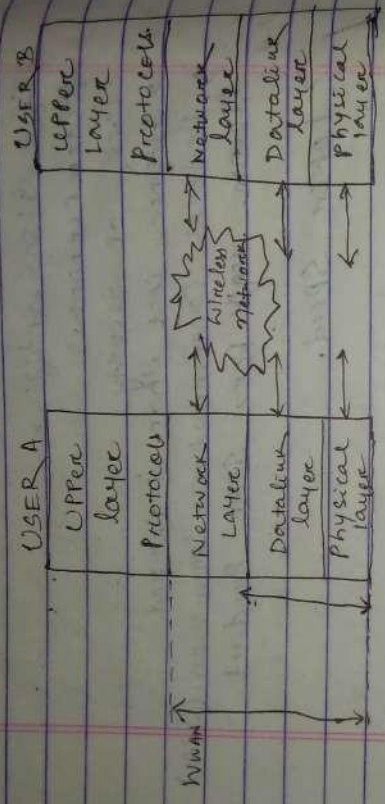 USER A
UPPer
layer
Protocols
Network
Layer
Datalink
layer
Physical
layer
Wireless
network
USER B
Upper
Layer
Protocols
Network
layer
Datalink
layer
Physical
layer
WWAN